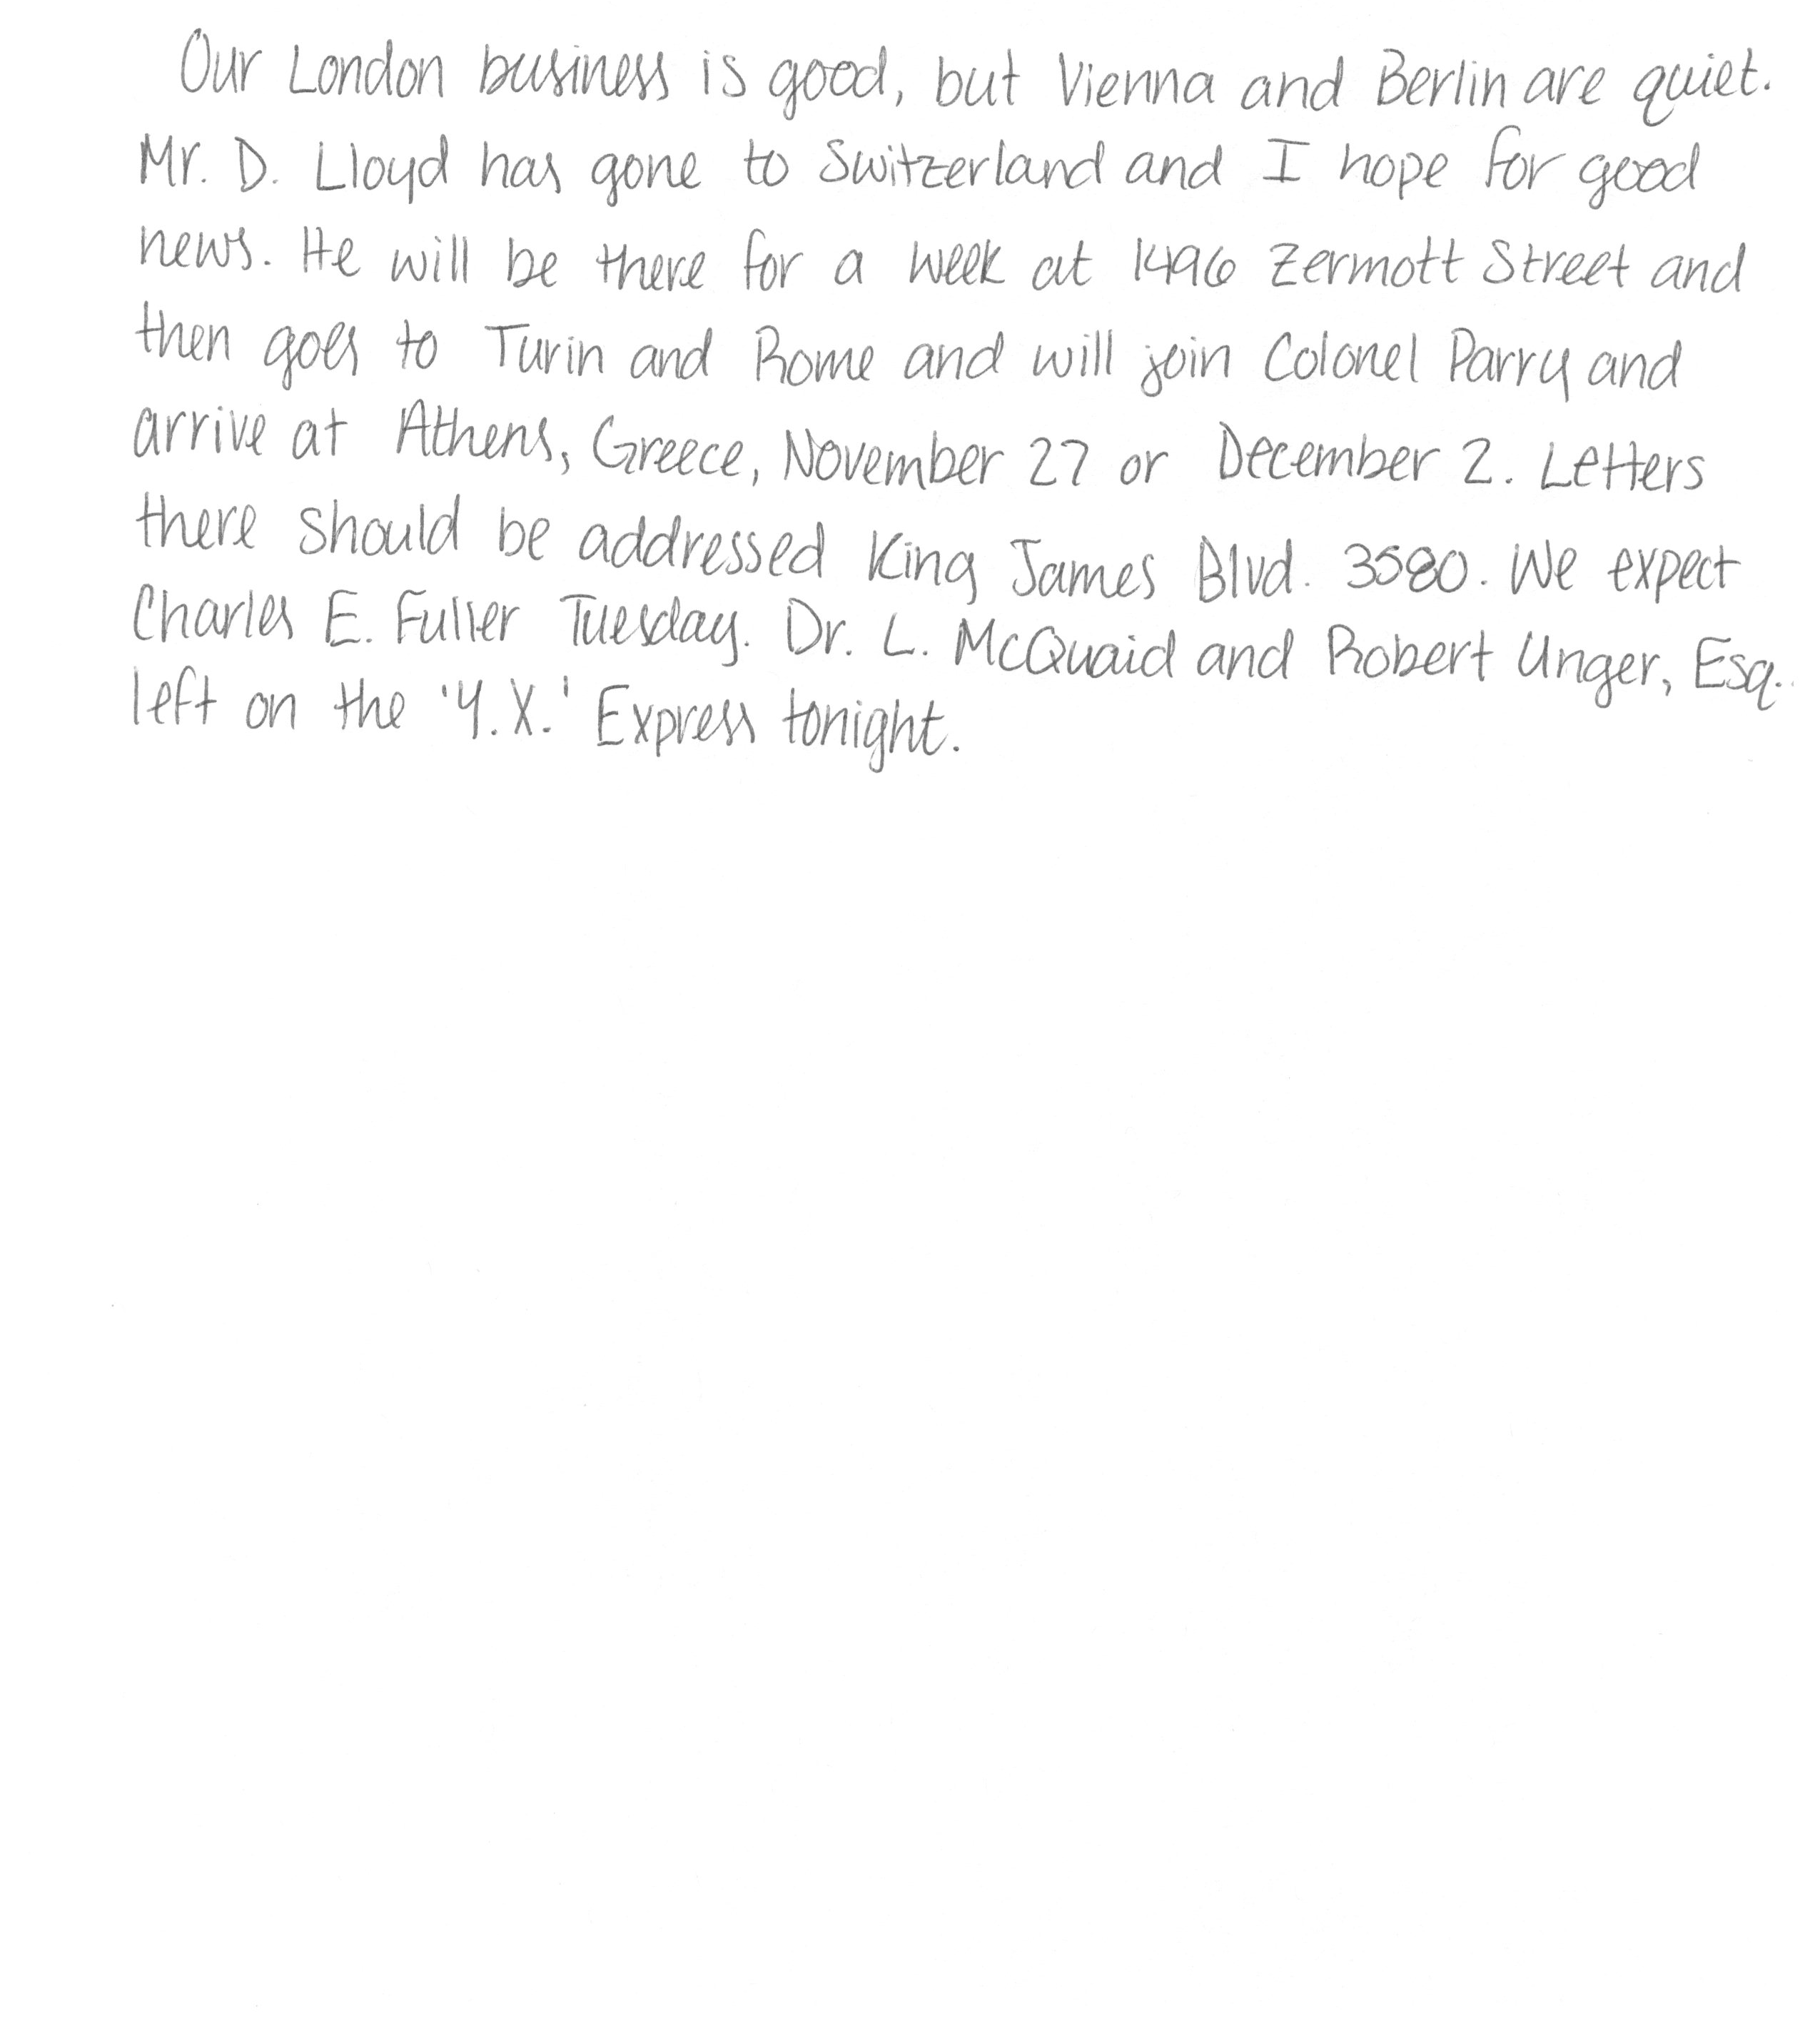 Our London business is good, but Vienna and Berlin are quiet.
Mr. D. Lloyd has gone to Switzerland and I hope for good
news. He will be there for a week at 1496 Zermott Street and
then goes to Turin and Rome and will join Colonel Parry and
arrive at Athens, Greece, November 27 or December 2. Letters
there should be addressed King James Blvd. 3580. We expect
Charles E. Fuller Tuesday. Dr. L. McQuaid and Robert Unger, Esq.
left on the 'Y.X.' Express tonight.